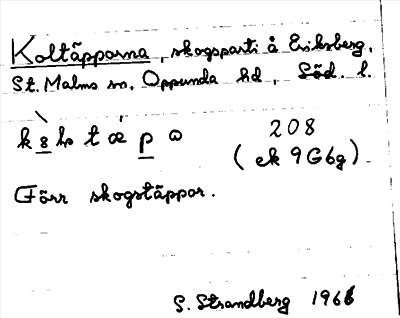 Koltäpporna, skogsparti å Eriksberg,
St. Malms sn, Oppunda hd, Söd. l.
208
(ek 9G6g).
Förr skogstäppor.
S. Strandberg 1966